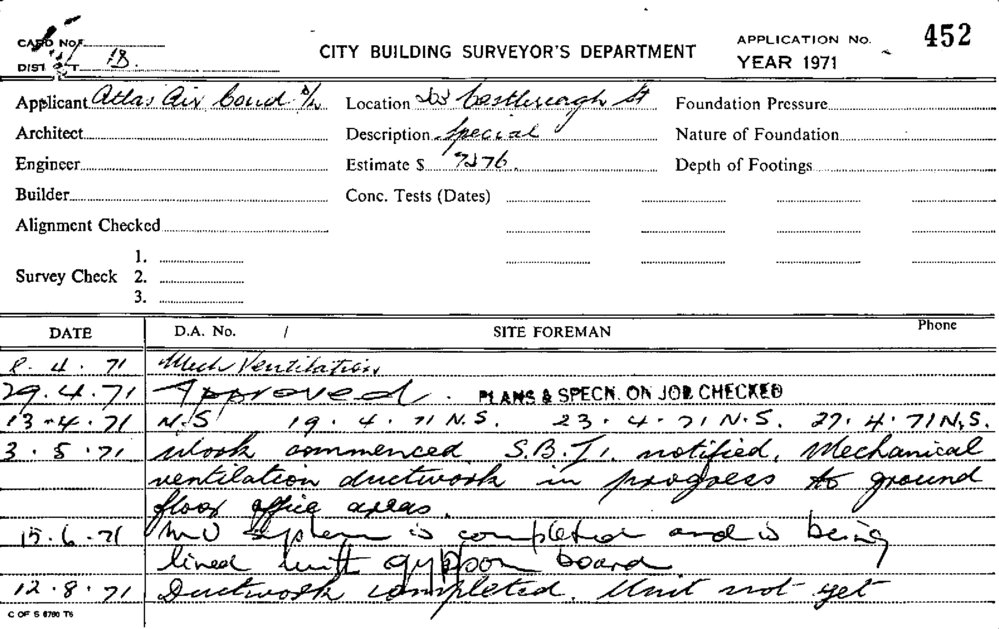 CARD No.
DISTT. 18.
CITY BUILDING SURVEYOR'S DEPARTMENT
APPLICATION No. 452
YEAR 1971
Applicant Atlas Air Cond. Location Castlereagh St Foundation Pressure
Architect Description Special Nature of Foundation
Engineer Estimate $ Depth of Footings
Builder Conc. Tests (Dates)
Alignment Checked
1.
Survey Check 2.
3.
DATE D.A. No. / SITE FOREMAN Phone
8.4.71 Mech Ventilation
29.4.71 Approved. PLANS & SPECN. ON JOB CHECKED
13-4-71 N.S 19.4.71 N.S. 23.4.71 N.S. 27.4.71 N.S.
3.5.71 Work commenced. S.B.I. notified. Mechanical
ventilation ductwork in progress to ground
floor office areas.
15.6.71 M V System is completed and is being
lined with gypson board
12.8.71 Ductwork completed. Unit not yet
C OF S 6780 T5